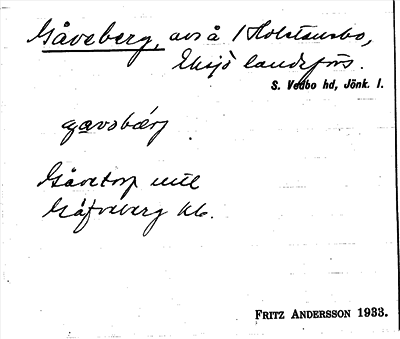 Gåveberg, avs å / Holstensbo,
Eksjö landsförs.
S. Vedbo hd, Jönk. l.
gavəbærj
Gåvetorp
Gåfveberg kb.
FRITZ ANDERSSON 1933.